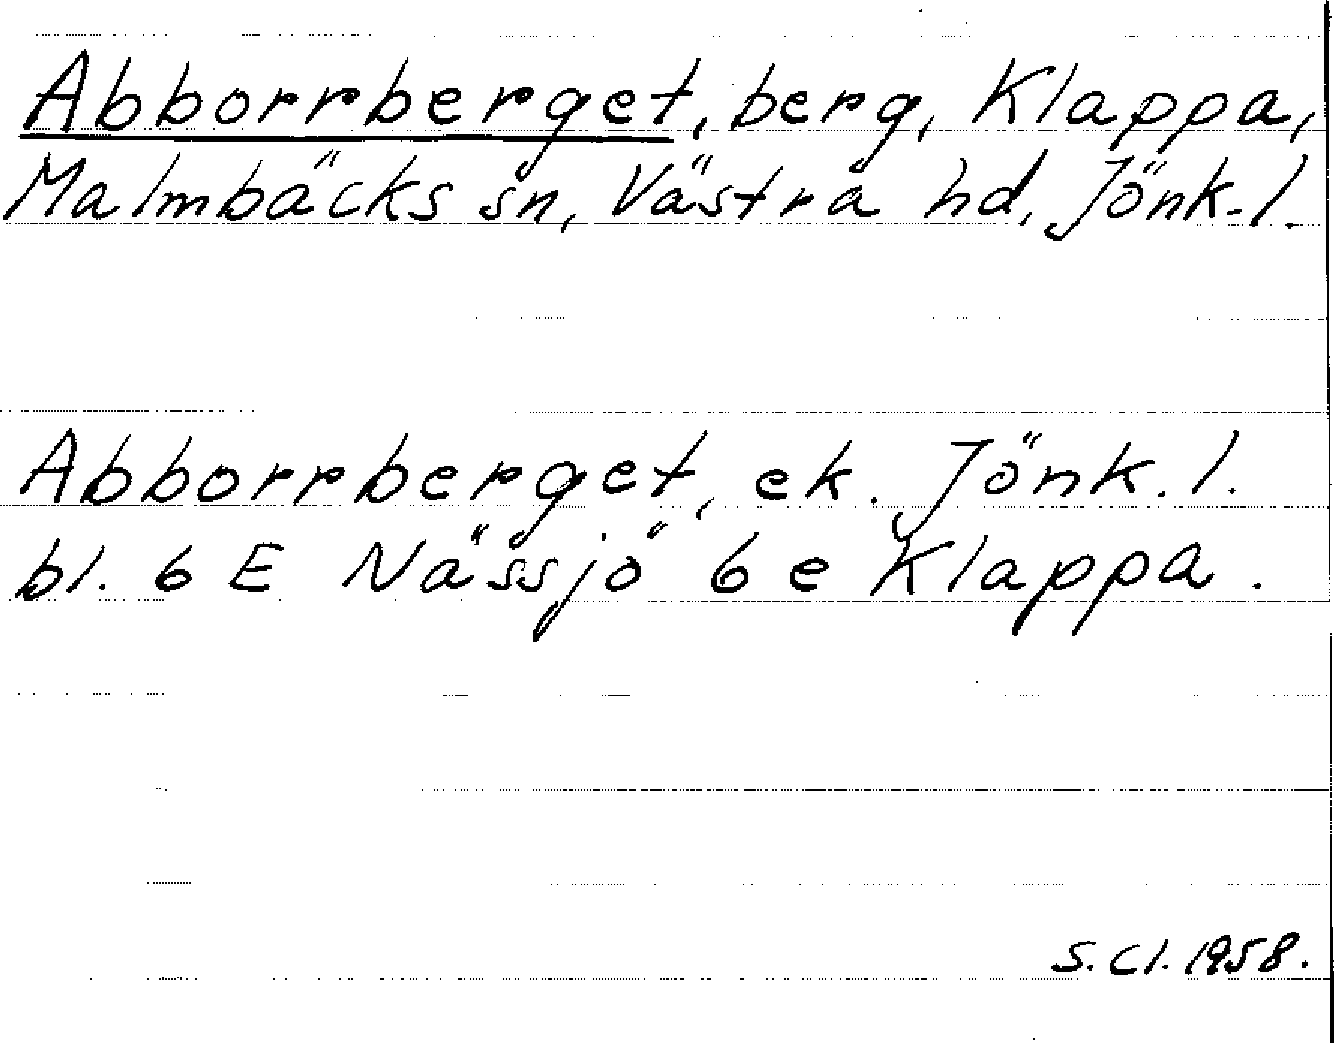 Abborrberget, berg, Klappa,
Malmbäcks sn, Västra hd, Jönk. l.
Abborrberget, ek. Jönk. l.
bl. 6 E Nässjö 6 e Klappa.
S. Cl. 1958.